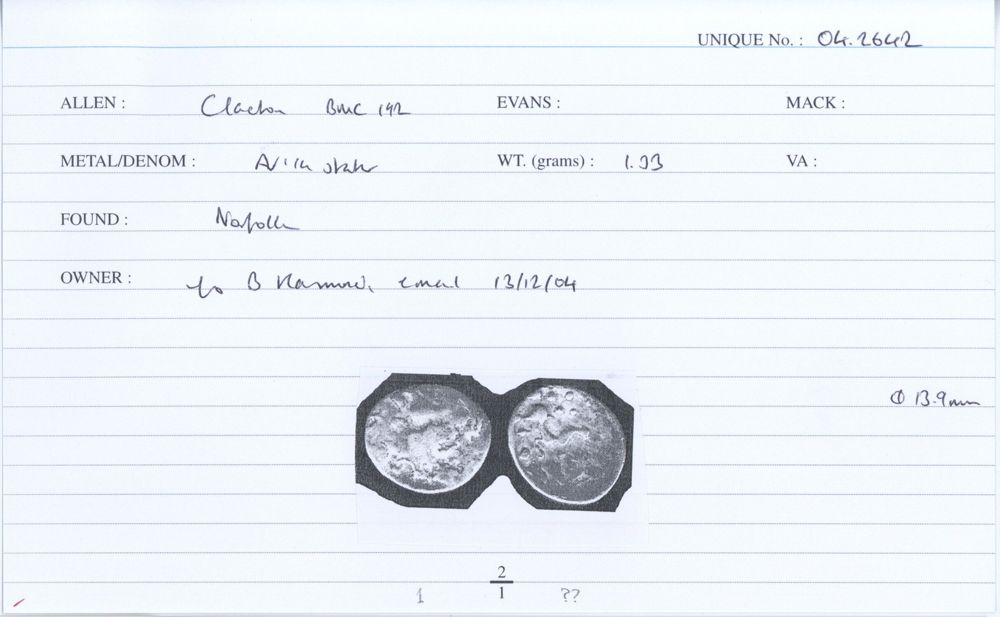 UNIQUE No. : 04.2642
ALLEN : Clacton BMC 192 EVANS : MACK :
METAL/DENOM : AV 1/4 stater WT. (grams) : 1.33 VA :
FOUND : Norfolk
OWNER : B email 13/12/04
Φ 13.9mm
2
1 1 ??